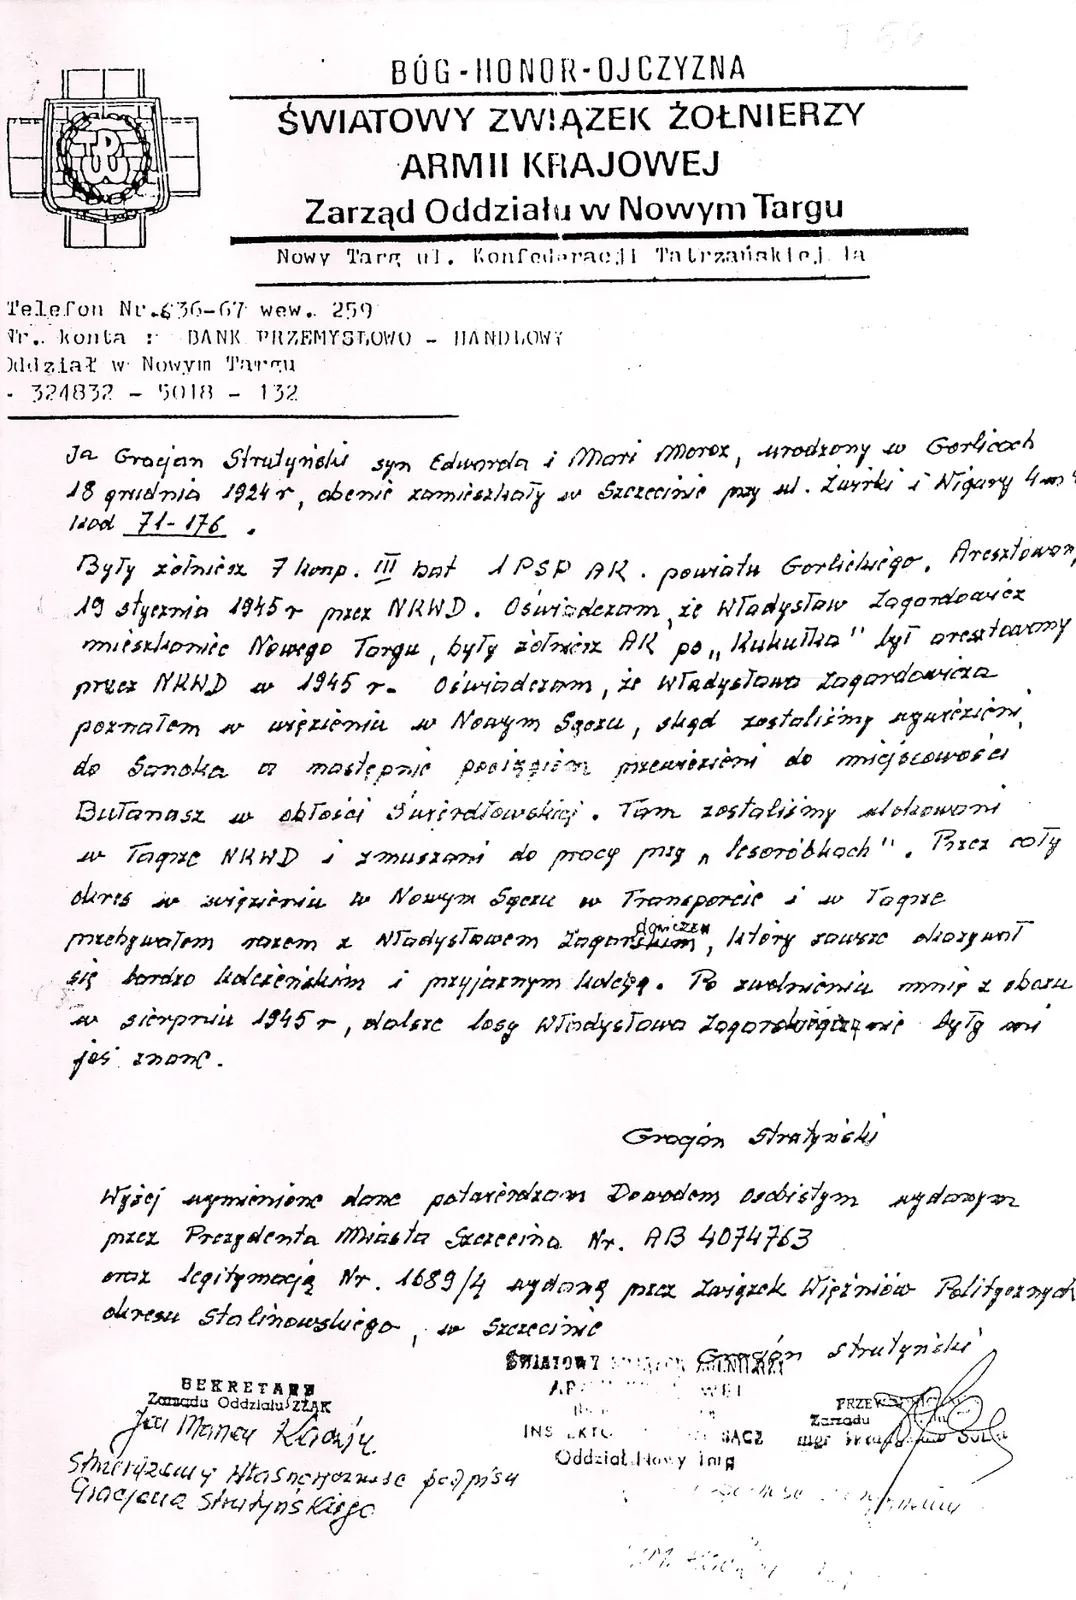 BÓG-HONOR-OJCZYZNA
ŚWIATOWY ZWIĄZEK ŻOŁNIERZY
ARMII KRAJOWEJ
Zarząd Oddziału w Nowym Targu
Nowy Targ ul. Konfederacji Tatrzańskiej 1a
Telefon Nr.636-67 wew. 259
Nr.. konta : BANK PRZEMYSŁOWO - HANDLOWY
Oddział w Nowym Targu
- 324832 - 5018 - 132
Ja Gracjan Strutyński syn Edwarda i Mari Moroz, urodzony w Gorlicach
18 grudnia 1924 r, obenie zamieszkały w Szczecinie przy ul. Żwirki i Wigury 4 m
kod 71-176 .
Były żołnierz 7 komp. III bat 1 PSP AK. powiatu Gorlickiego. Aresztowan
19 stycznia 1945 r przez NKWD. Oświadczam, że Władysław Zagardowicz
mieszkaniec Nowego Targu, były żołnierz AK ps „Kukułka" był aresztowany
przez NKWD w 1945 r. Oświadczam, że Władysława Zagardowicza
poznałem w więzieniu w Nowym Sączu, skąd zostaliśmy wywiezieni
do Sanoka a następnie pociągiem przewiezieni do miejscowości
Bułanasz w obłości Świerdłowskiej. Tam zostaliśmy ulokowani
w Łagrze NKWD i zmuszani do pracy przy „lesoróbkach". Przez cały
okres w więzieniu w Nowym Sączu w Transporcie i w Łagrze
przebywałem razem z Władysławem Zagar
dowiczem
, który zawsze okazywał
się bardzo koleżeńskim i przyjaznym kolegą. Po zwolnieniu mnie z obozu
w sierpniu 1945 r, dalsze losy Władysława Zagardowicza nie były mi
jeś znane.
Gracjan Strutyński
Wyżej wymienione dane potwierdzam Dowodem osobistym wydanym
przez Prezydenta Miasta Szczecina Nr. AB 4074763
oraz legitymacją Nr. 1689/4 wydaną przez Związek Więźniów Politycznych
okresu Stalinowskiego, w Szczecinie
Gracjan Strutyński
ŚWIATOWY ZWIĄZEK ŻOŁNIERZY
SĄCZ
Oddział Nowy Targ
SEKRETARZ
Zarządu Oddziału ŚZŻAK
Stwierdzamy własnoręczność podpisu
Gracjana Strutyńskiego
Zarządu
mgr